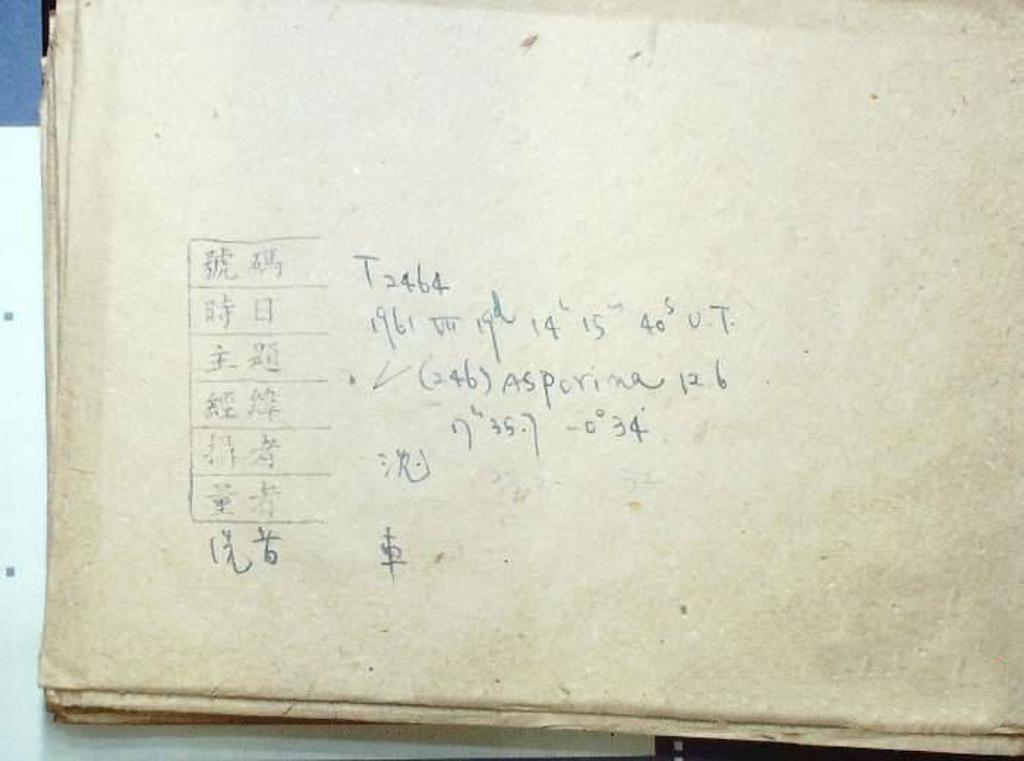 號碼 T2464
時日 1961 VII 19d 14h 15m 40s U.T.
主題 ✓ (246) Asporina 12.6
經緯 17h 35.7 -0° 34'
攝者 沈
量者
洗者 車